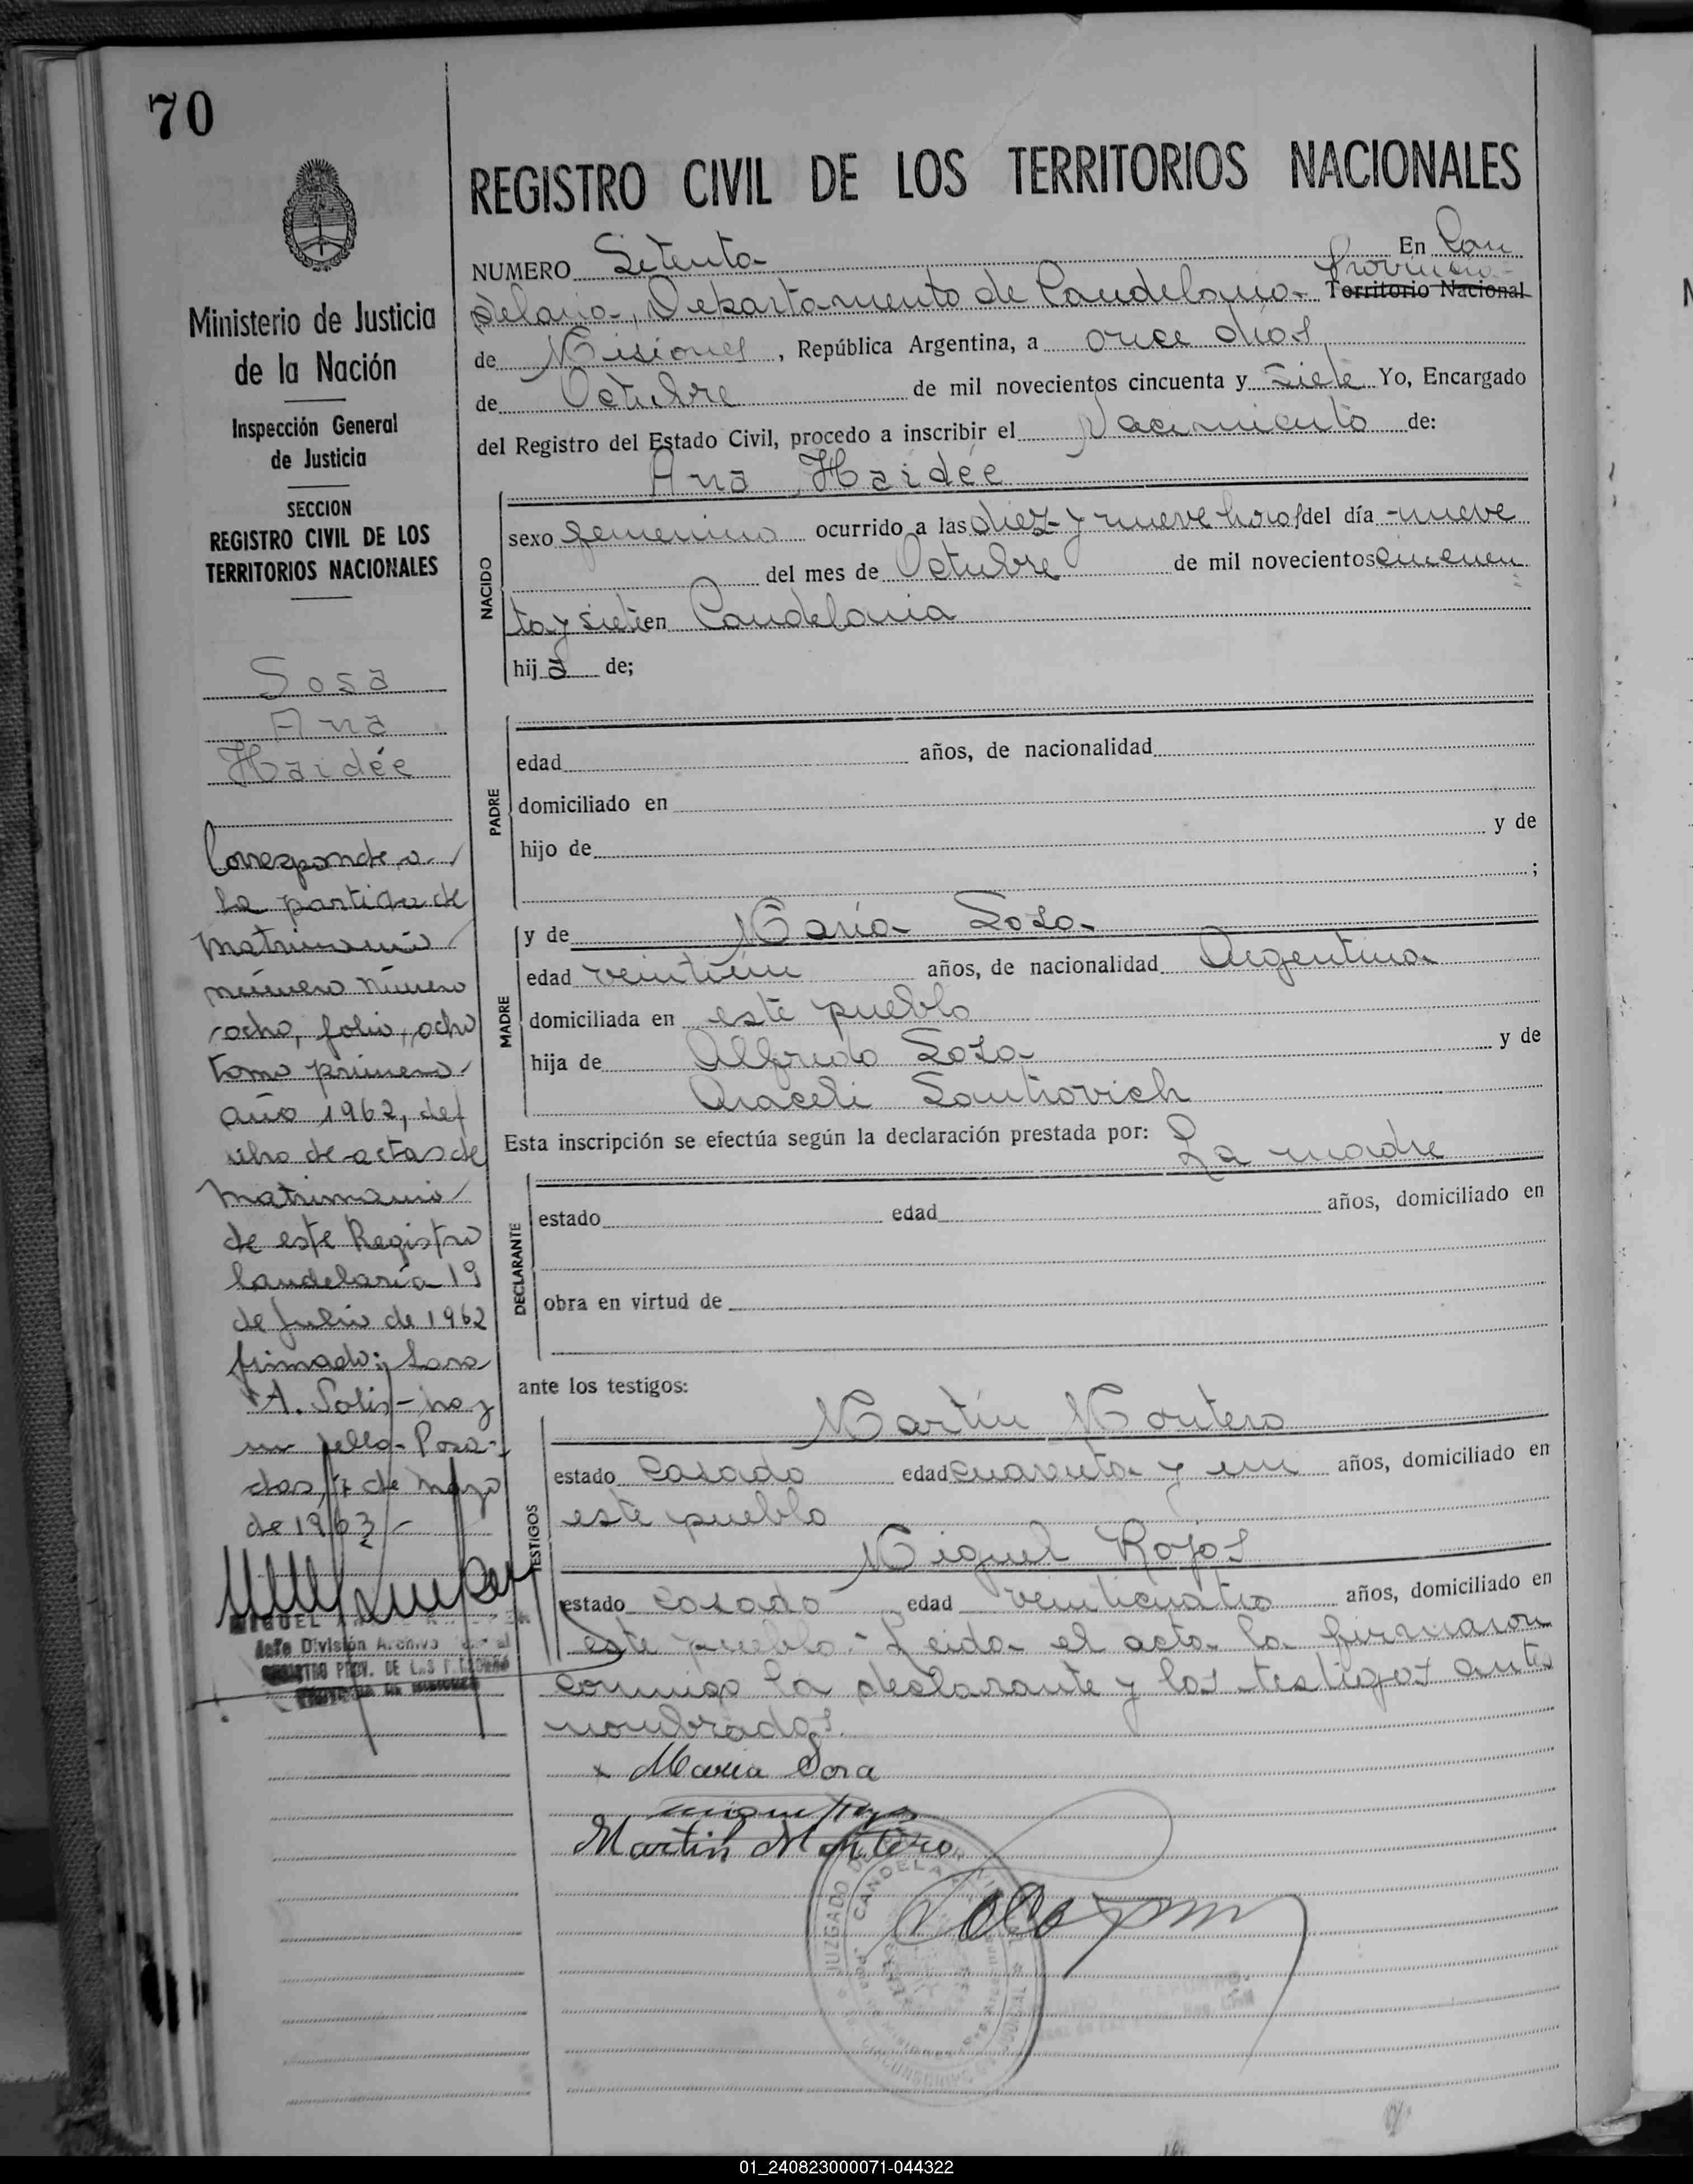 70
REGISTRO CIVIL DE LOS TERRITORIOS NACIONALES
Ministerio de Justicia
de la Nación
Inspección General
de Justicia
SECCION
REGISTRO CIVIL DE LOS
TERRITORIOS NACIONALES
Sosa
Ana
Haidée
Corresponde a
la partida de
matrimonio
número número
ocho, folio, ocho
tomo primero
año 1962, del
libro de actas de
matrimonio
de este Registro
Candelaria 19
de Julio de 1962
firmado: Sara
A. Solis - hay
un sello - Posa-
das, 7 de mayo
de 1963 -
MIGUEL
Jefe División Archivo
REGISTRO PROV. DE LAS PERSONAS
PROVINCIA DE MISIONES
NUMERO Setenta En Can
Provincia
delaria, Departamento de Candelaria Territorio Nacional
de Misiones, República Argentina, a once días
de Octubre de mil novecientos cincuenta y siete Yo, Encargado
del Registro del Estado Civil, procedo a inscribir el Nacimiento de:
Ana Haidée
NACIDO
sexo femenino ocurrido a las diez y nueve horas del día nueve
del mes de Octubre de mil novecientos cincuen
ta y siete en Candelaria
hija de;
PADRE
edad años, de nacionalidad
domiciliado en
hijo de y de
;
MADRE
y de María Sosa
edad veintiún años, de nacionalidad Argentina
domiciliada en este pueblo
hija de Alfredo Sosa y de
Araceli Santrovich
Esta inscripción se efectúa según la declaración prestada por: La madre
DECLARANTE
estado edad años, domiciliado en
obra en virtud de
ante los testigos:
TESTIGOS
Martín Montero
estado casado edad cuarenta y un años, domiciliado en
este pueblo
Miguel Rojas
estado casado edad veinticuatro años, domiciliado en
este pueblo.- Leida el acta la firmaron
conmigo la declarante y los testigos antes
nombrados.
x Maria Sosa
Miguel Rojas
Martin Montero
JUZGADO DE
CANDELARIA
01_240823000071-044322